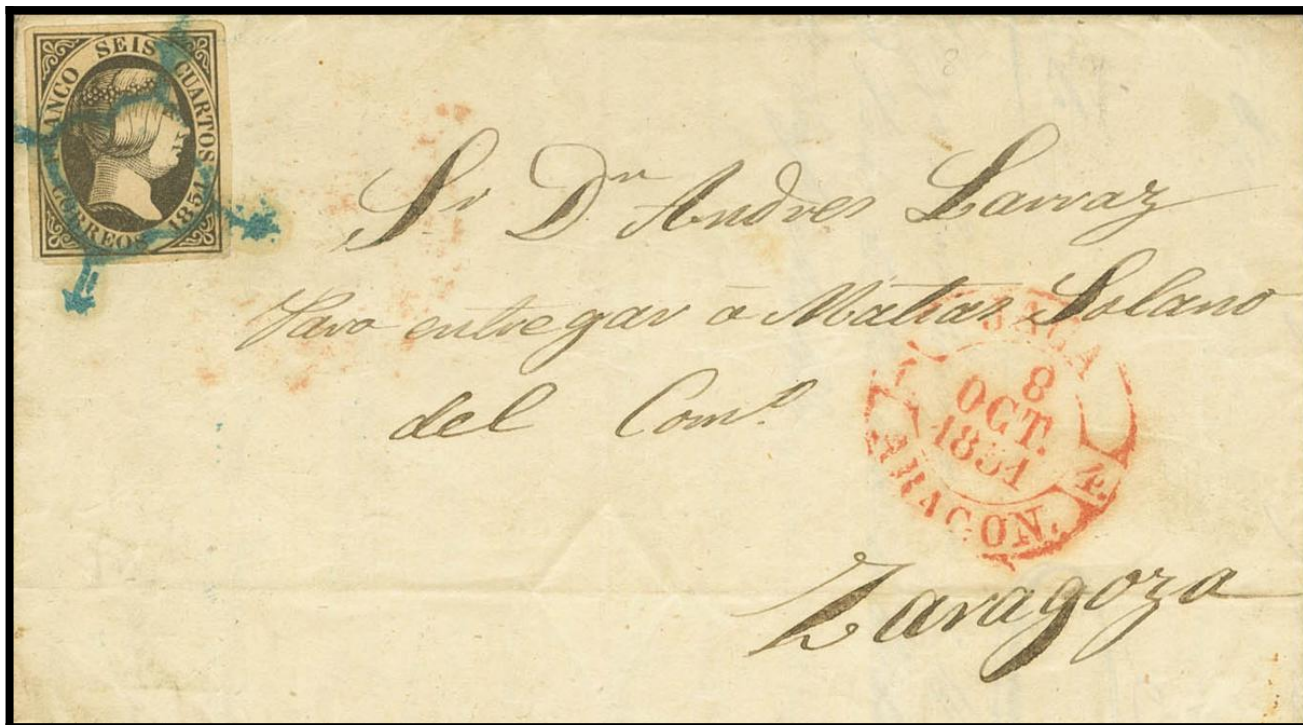 FRANCO SEIS CUARTOS
CORREOS 1851
Sr Dn Andres Larraz
Para entregar a Matias Solano
del Como
JACA
8
OCT.
1851
ARAGON. 4.
Zaragoza